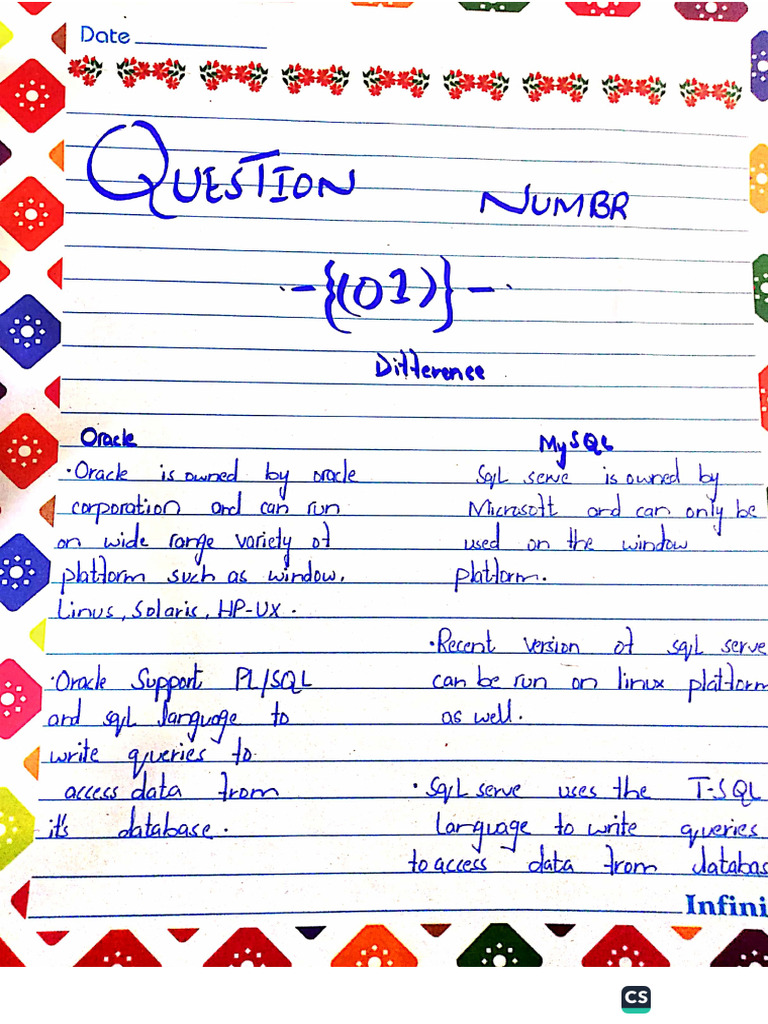 Date
QUESTION NUMBR
·-{(01)}-·
Difference
Oracle
·Oracle is owned by oracle
corporation and can run
on wide range variety of
platform such as window,
Linus, Solaris, HP-UX.
·Oracle Support PL/SQL
and sqL language to
write queries to
access data from
it's database.
MySQL
SqL serve is owned by
Microsoft and can only be
used on the window
platform.
·Recent version of sqL serve
can be run on linux platform
as well.
·SqL serve uses the T-SQL
language to write queries
to access data from databas
Infini
CS